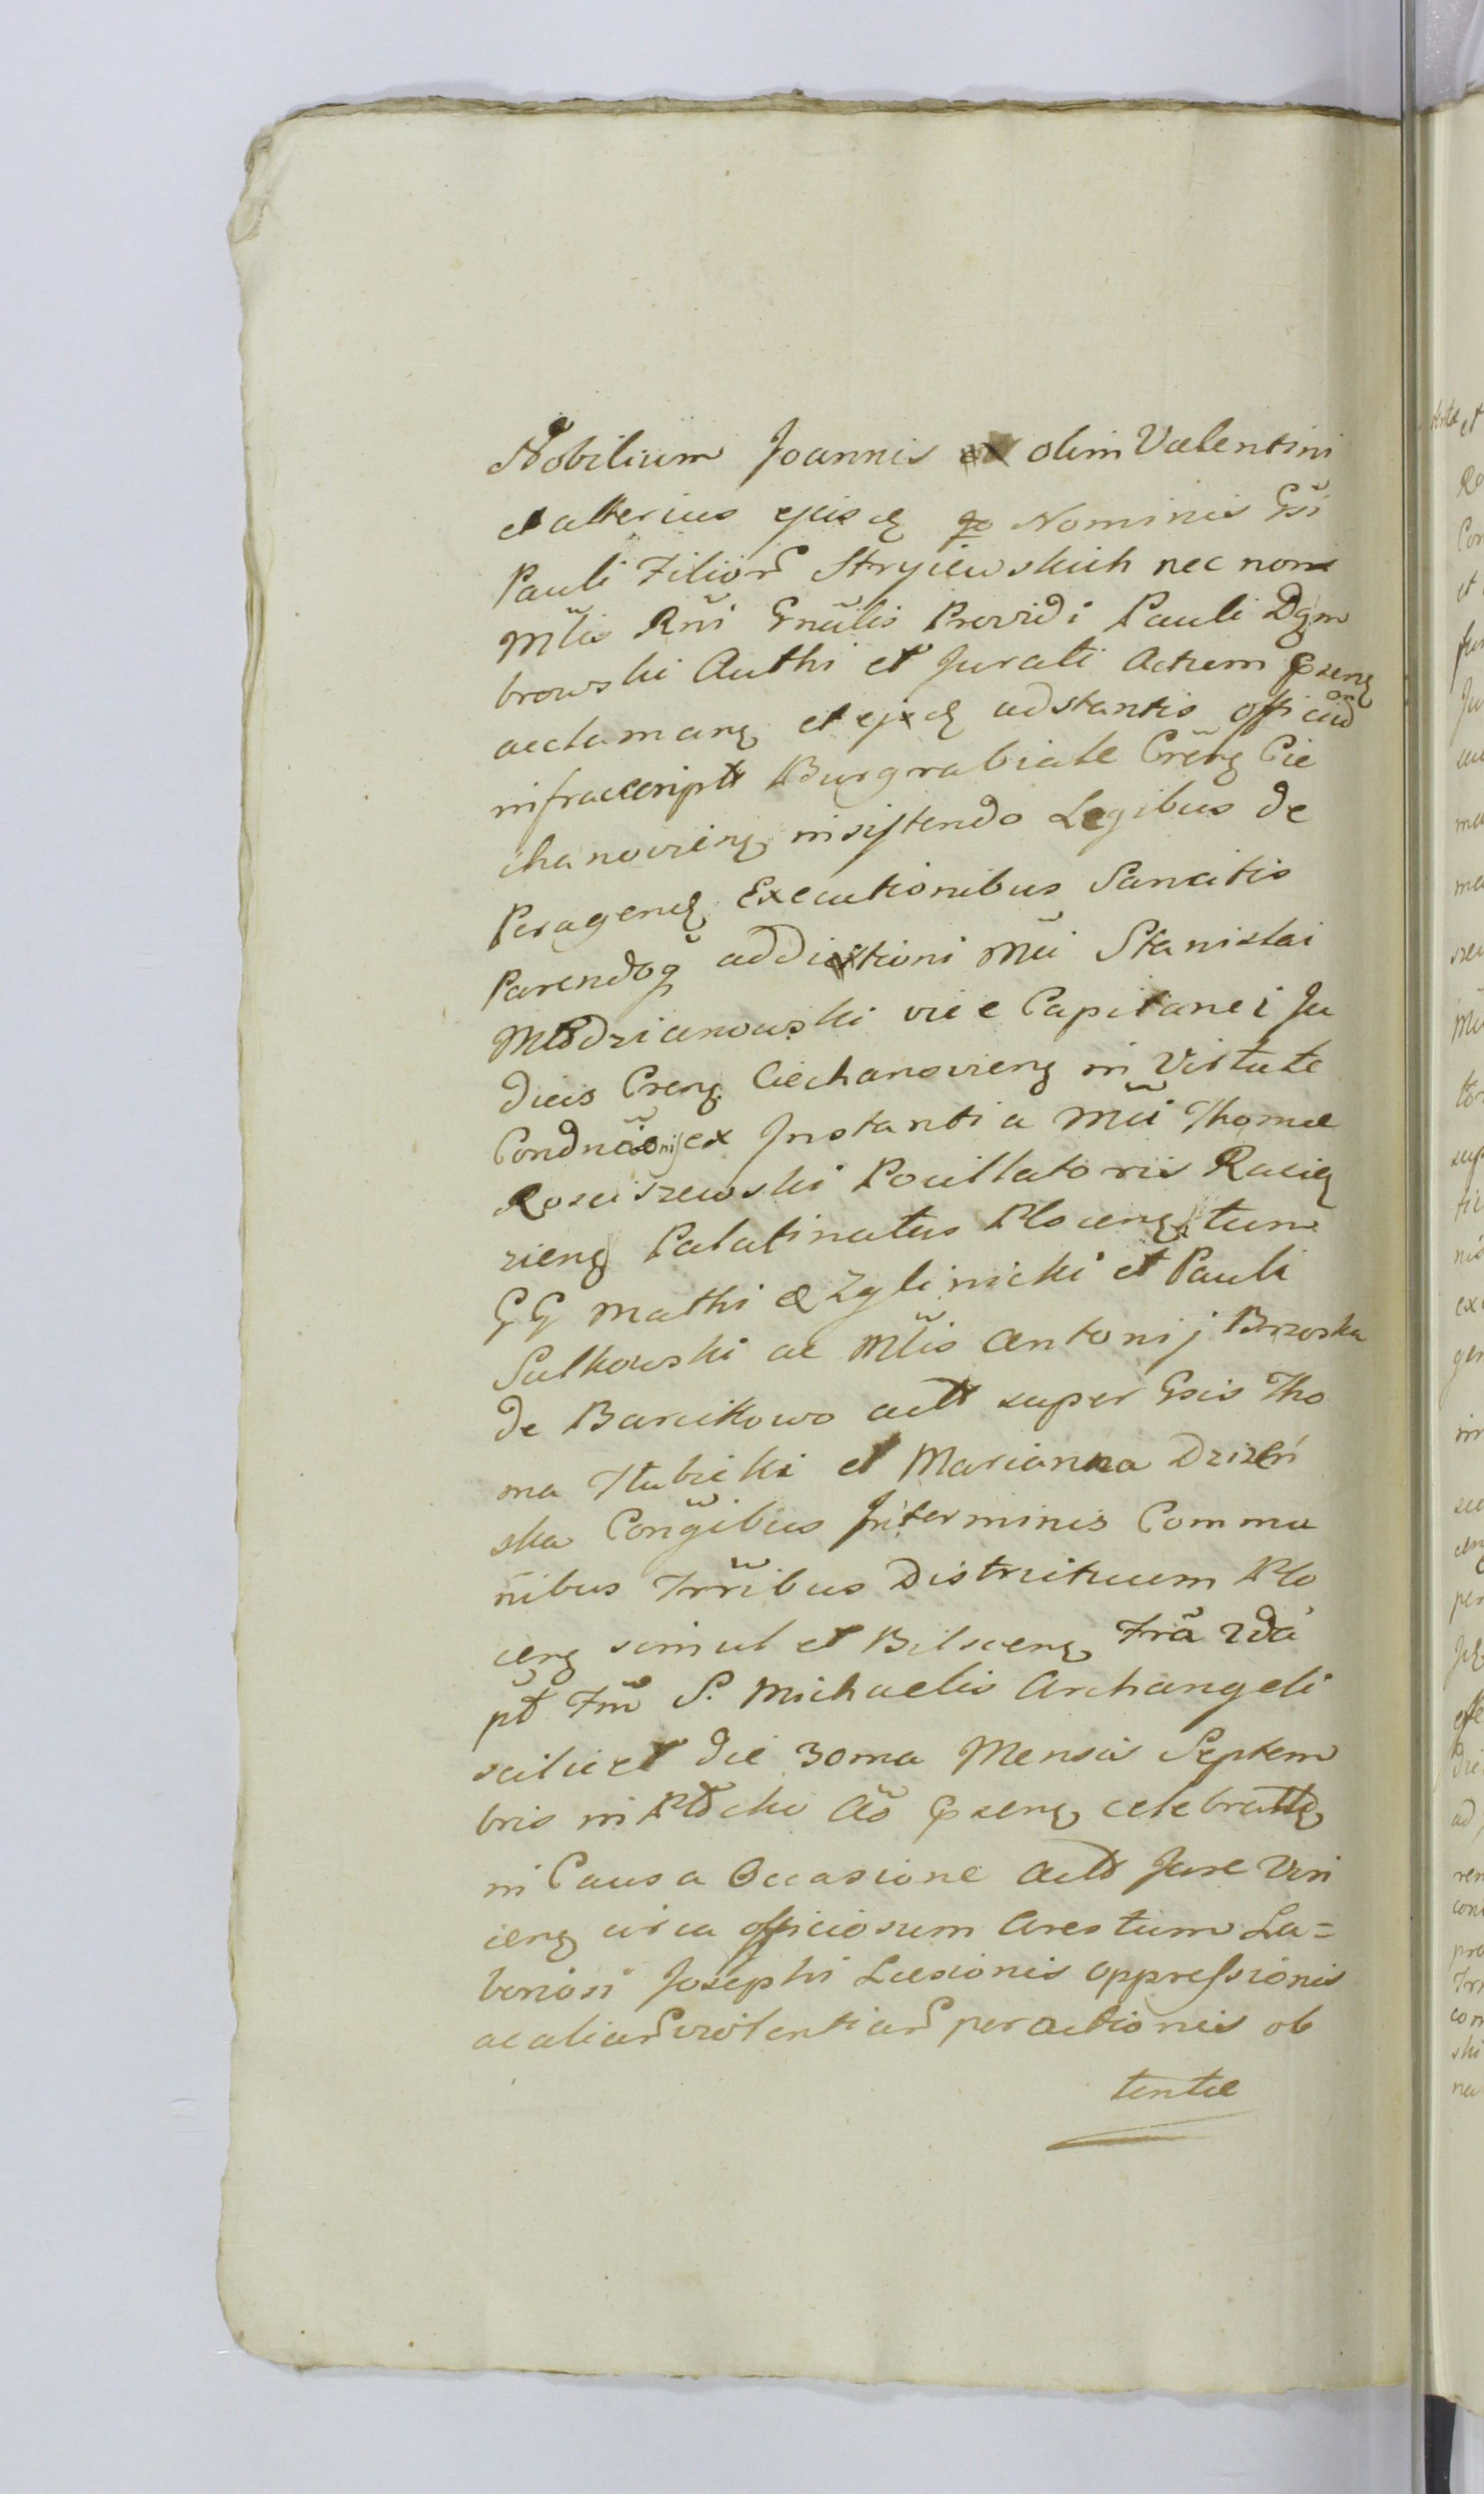 Nobilium Joannis olim Valentini
et alterius ejusq go Nominis Gsi
Pauli Filior Stryiewskich nec non
Mlis Rni Gnalis Providi Pauli Dąm
browski Authi et Jurati Actum pseng
acclamang et ejxq adstantis officio
infrascript Burgrabiale Creng Cie
chanovieng insistendo Legibus de
Peragenq Executionibus Sancitis
Parendoq addictioni Mci Stanislai
Młodzianowski vice Capitanei Ju
dicis Creng Ciechanovieng in Virtute
Condnaonis ex Instantia Mci Thomæ
Rosciszewski Pocillatoris Racią
zieng Palatinatus Ploceng tum
GG Mathiæ Zglinicki et Pauli
Sulkowski ac Mlis Antonij Brzoska
de Barcikowo actt super Gsis Tho
ma Hubicki et Marianna Drizeń
ska Congibus in terminis Commu
nibus Trribus Districtuum Plo
ceng simul et Bilsceng Fra 2da
pt Fm S. Michaelis Archangeli
scilicet die 30ma Mensis Septem
bris in Płocko Ao pseng celebratt
in Causa Occasione actt Jure Vin
ceng circa officiosum Arestum La=
boriosi Josephi Læsionis oppressionis
ac aliar violentiar peractionis ob
tentæ